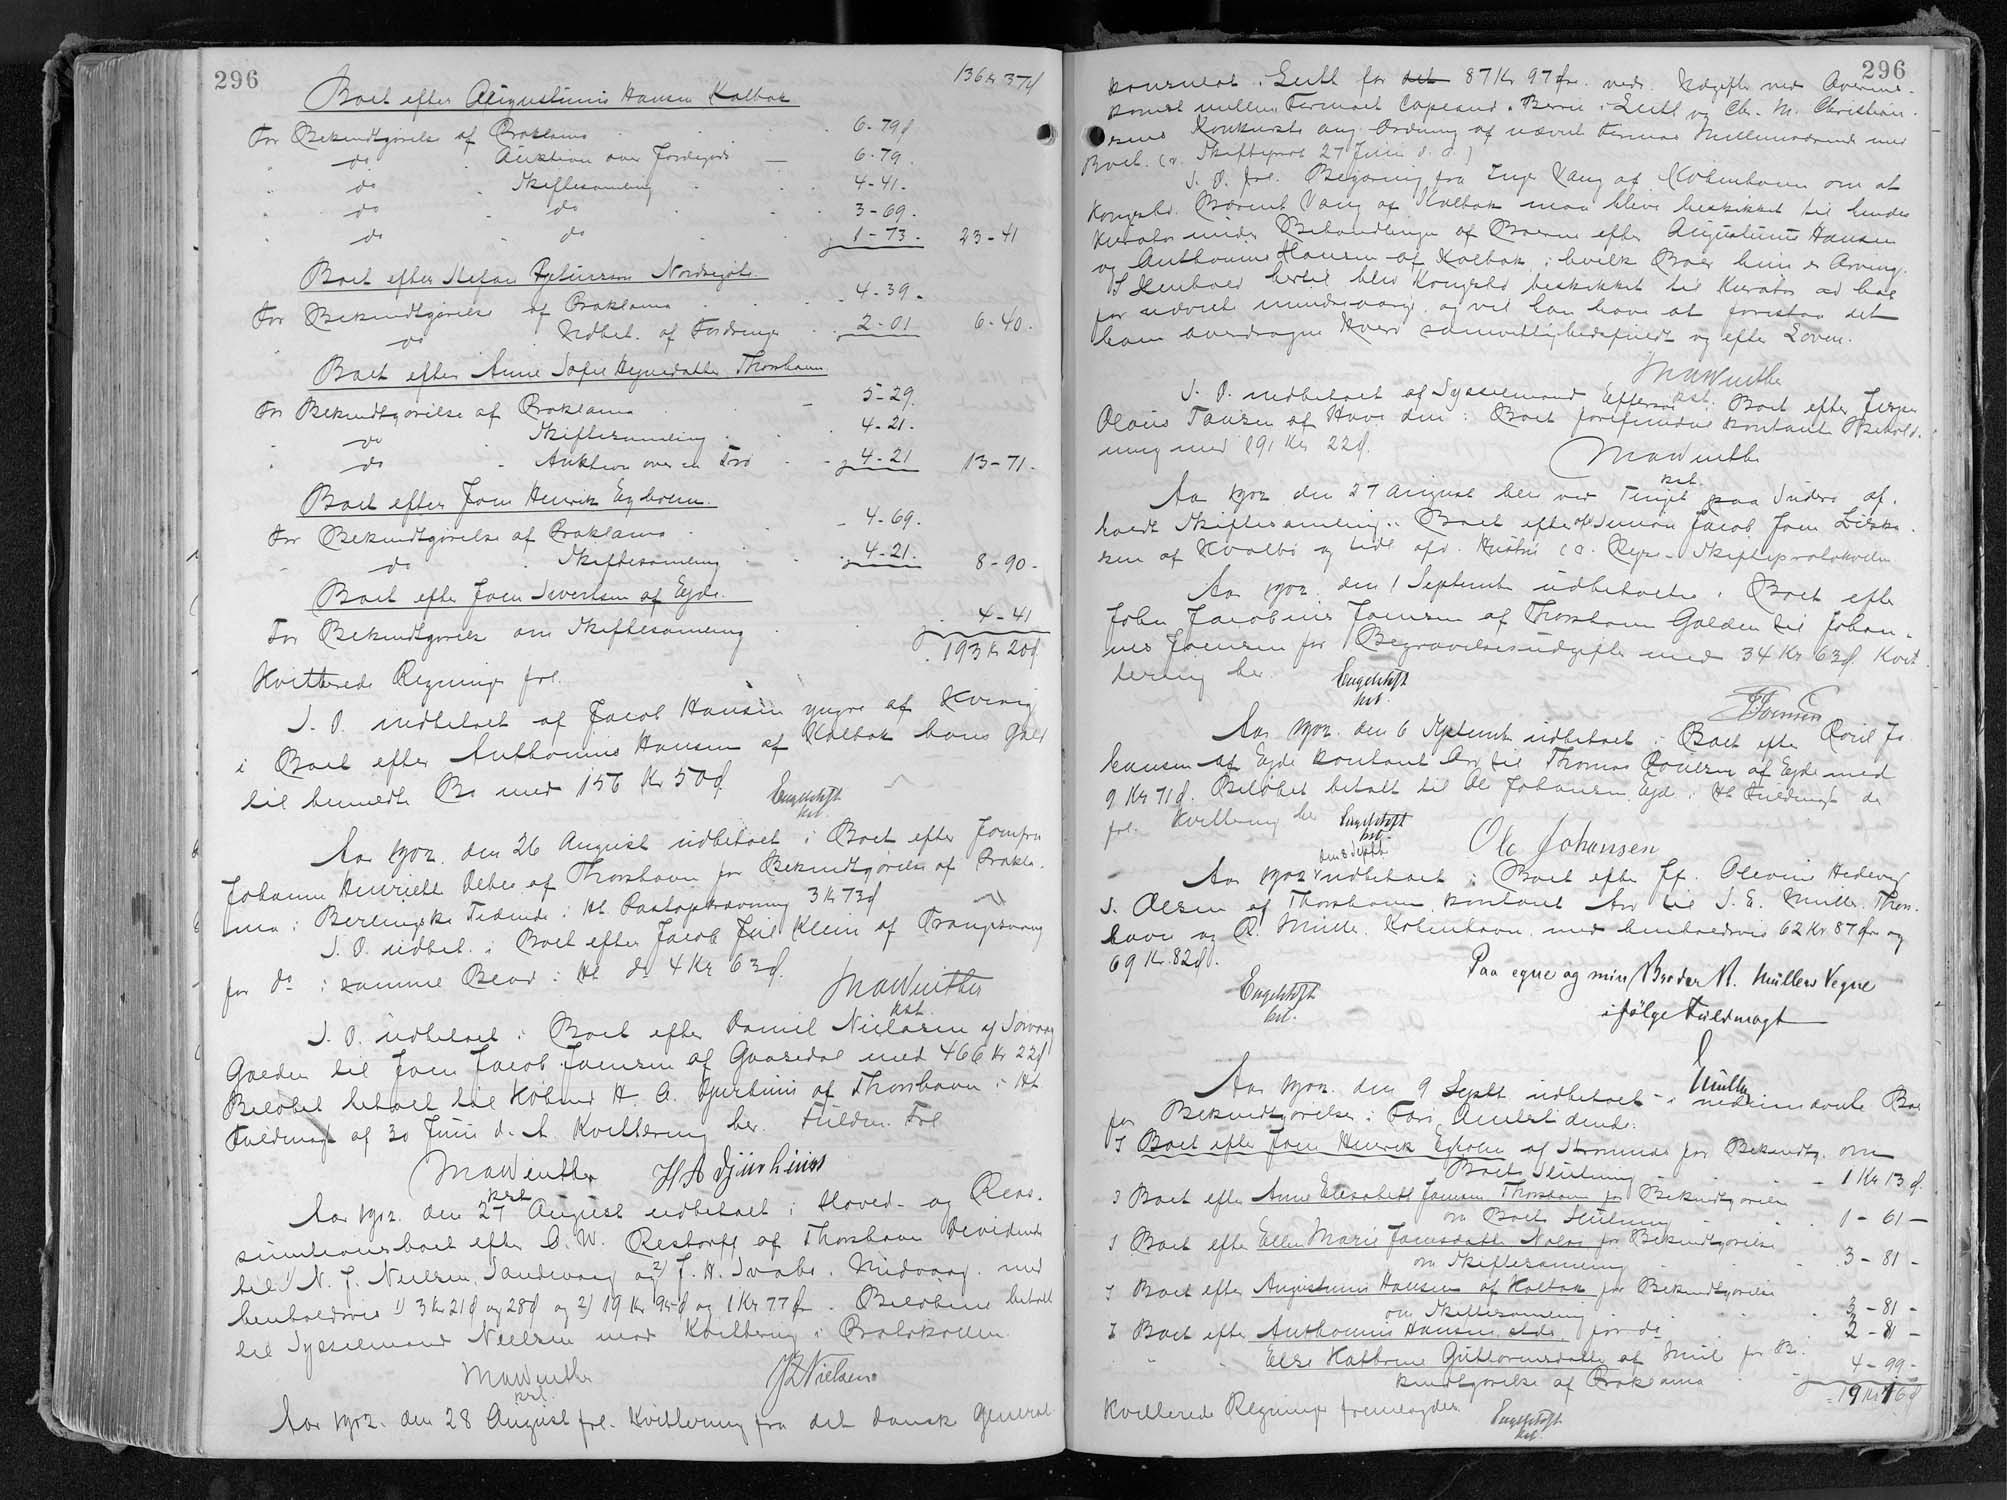 296
136 Kr 37 ø
Boet efter Augustinus Hansen Kalbak
For Bekendtgörelse af Proklama 6-79 ø
" do " Auktion over Jordegods - 6-79.
" do " Skiftesamling 4-41.
" do " do 3-69.
" do " do 1-73. 23-41
Boet efter Stefan Nordregöte.
For Bekendtgörelse af Proklama 4-39.
" do Udbet. af Fordringer 2-01 6-40.
Boet efter Anne Sofie Thorshavn
For Bekendtgörelse af Proklama - 5-29.
" do Skiftesamling 4-21.
" do - Auktion over en 4-21 13-71.
Boet efter Joen Henrik Egholm.
For Bekendtgörelse af Proklama - 4-69.
" do Skiftesamling 4-21. 8-90.
Boet efter Joen Sivertsen af Ejde.
For Bekendtgörelse om Skiftesamling 4-41
193 Kr 20 ø
Kvitterede Regninger frl.
S. D. indbetalt af Jacob Hansen yngre af Kvivig
i Boet efter Anthonius Hansen af Kalbak hans Gæld
til bemeldte Bo med 156 Kr 50 ø.
Engelstoft
kst.
Aar 1902. den 26 August udbetalt i Boet efter Jomfru
Johanne Henriette Debes af Thorshavn for Bekendtgörelse af Prokla-
ma i Berlingske Tidende i Hl. Postopkrævning 3 Kr 73 ø
S. D. udbet. i Boet efter Jacob Juul Klein af Trangisvaag
for do i samme Blad i Hl. do 4 Kr 63 ø.
MAWinther
kst.
S. D. udbetalt i Boet efter Daniel Niclasen af Sorvaag
Gælden til Joen Jacob Joensen af Gaasedal med 466 Kr 22 ø
Belöbet betalt til Köbmd H. A. Djurhuus af Thorshavn i Hl.
Fuldmagt af 30 Juni d. A. Kvittering her. Fuldm. Frl.
MAWinther H A Djurhuus
kst.
Aar 1902. den 27 August udbetalt i Hoved- og Reas-
sumtionsboet efter D. W. Restorff af Thorshavn Dividende
til 1) N. J. Nielsen, Sandevaag og 2) J. H. Svabo. Midvaag. med
henholdsvis 1) 3 Kr 21 ø og 28 ø og 2) 19 Kr 94 ø og 1 Kr 77 ø. Belöbene betalt
til Sysselmand Nielsen mod Kvittering i Protokollen.
MAWinther Nielsen
kst.
Aar 1902. den 28 August frl. Kvittering fra det danske General-
296
konsulat i Leith for det 87 Kr 97 øre vedr. Udgifter ved Overens-
komst mellem Firmaet Copeland & Berrie i Leith og Chr. M. Christian-
sens Konkursbo ang. Ordning af nævnte Firmas Mellemværende med
Boet. (v. Skifteprot 27 Juni d. A.)
S. D. frl. Begæring fra Inge Vang af Köbenhavn om at
Kongsbd. Barent Vang af Kalbak maa blive beskikket til hendes
Kurator under Behandlingen af Boerne efter Augustinus Hansen
og Anthonius Hansen af Kalbak i hvilke Boer hun er Arving.
I Henhold hertil blev Kongsbd beskikket til Kurator ad hoc
for nævnte mindreaarig og vil han have at forestaa det
ham overdragne Hverv samvittighedsfuldt og efter Loven.
MAWinther
kst.
S. D. indbetalt af Sysselmand Effersöe i Boet efter Jesper
Olaus Tausen af Have den i Boet forefundne kontant Behold-
ning med 191 Kr 22 ø.
MAWinther
kst.
Aar 1902 den 27 August blev ved Tinget paa Suderö af-
holdt Skiftesamling i Boet efter Simon Jacob Joen
sen af Kvalbö og tidl. afd. Hustru (v. Rejse-Skifteprotokollen
Aar 1902. den 1 Septembr udbetaltes i Boet efter
John Jacobinus Joensen af Thorshavn Gælden til Johan-
nes Joensen for Begravelsesudgifter med 34 Kr 63 ø. Kvit-
tering her.
Engelstoft
kst.
Joensen
Aar 1902. den 6 Septembr udbetalt i Boet efter Poul Jo-
hansen af Ejde kontant Arv til Thomas Poulsen af Ejde med
9 Kr 71 ø. Belöbet betalt til Ole Johansen. Ejde i Hl. Fuldmagt der
frl. Kvittering her
Engelstoft
kst.
Ole Johansen
Aar 1902 den 8 Septbr. udbetalt i Boet efter Jf. Olevine Hedevig
S. Olsen af Thorshavn kontant Arv til S. E. Müller. Thors-
havn og R. Müller. Köbenhavn med henholdsvis 62 Kr 87 øre og
69 Kr. 82 ø.
Engelstoft
kst.
Paa egne og min Broder R. Müllers Vegne
ifölge Fuldmagt
Müller
Aar 1902. den 9 Septbr. udbetalt i nedennævnte Boer
for Bekendtgörelse i Færö Amtstidende.
I Boet efter Joen Henrik Egholm af Strömnæs for Bekendtg. om
Boets Slutning - 1 Kr 13 ø.
I Boet efter Anne Elisabeth Joensen Thorshavn for Bekendtgörelse
om Boets Slutning 1-61-
I Boet efter Ellen Marie Joensdatter Nolsö for Bekendtgörelse
om Skiftesamling 3-81-
I Boet efter Augustinus Hansen af Kalbak for Bekendtgörelse
om Skiftesamling 3-81-
I Boet efter Anthonius Hansen sstds for do 3-81-
" " Else Kathrine Guttormsdatter af for Be-
kendtgörelse af Proklama 4-99-
19 Kr 16 ø
Kvitterede Regninger fremlagdes
Engelstoft
kst.